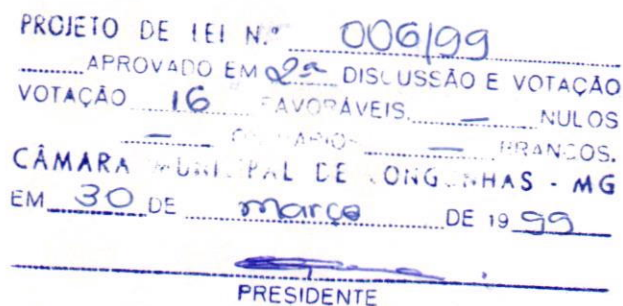 PROJETO DE LEI N.º 006/99
APROVADO EM 2ª DISCUSSÃO E VOTAÇÃO
VOTAÇÃO 16 FAVORÁVEIS, — NULOS
— CONTRÁRIOS — BRANCOS.
CÂMARA MUNICIPAL DE CONGONHAS - MG
EM 30 DE março DE 1999
PRESIDENTE